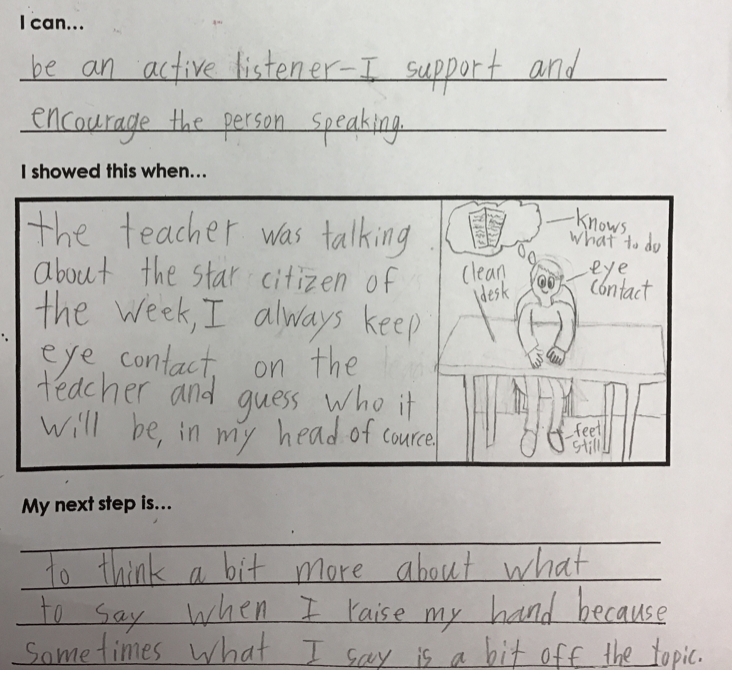 I can...
be an active listener-I support and
encourage the person speaking.
I showed this when...
the teacher was talking
about the star citizen of
the week, I always keep
eye contact on the
teacher and guess who it
will be, in my head of cource.
knows
what to do
clean
desk
eye
contact
feet
still
My next step is...
to think a bit more about what
to say when I raise my hand because
sometimes what I say is a bit off the topic.